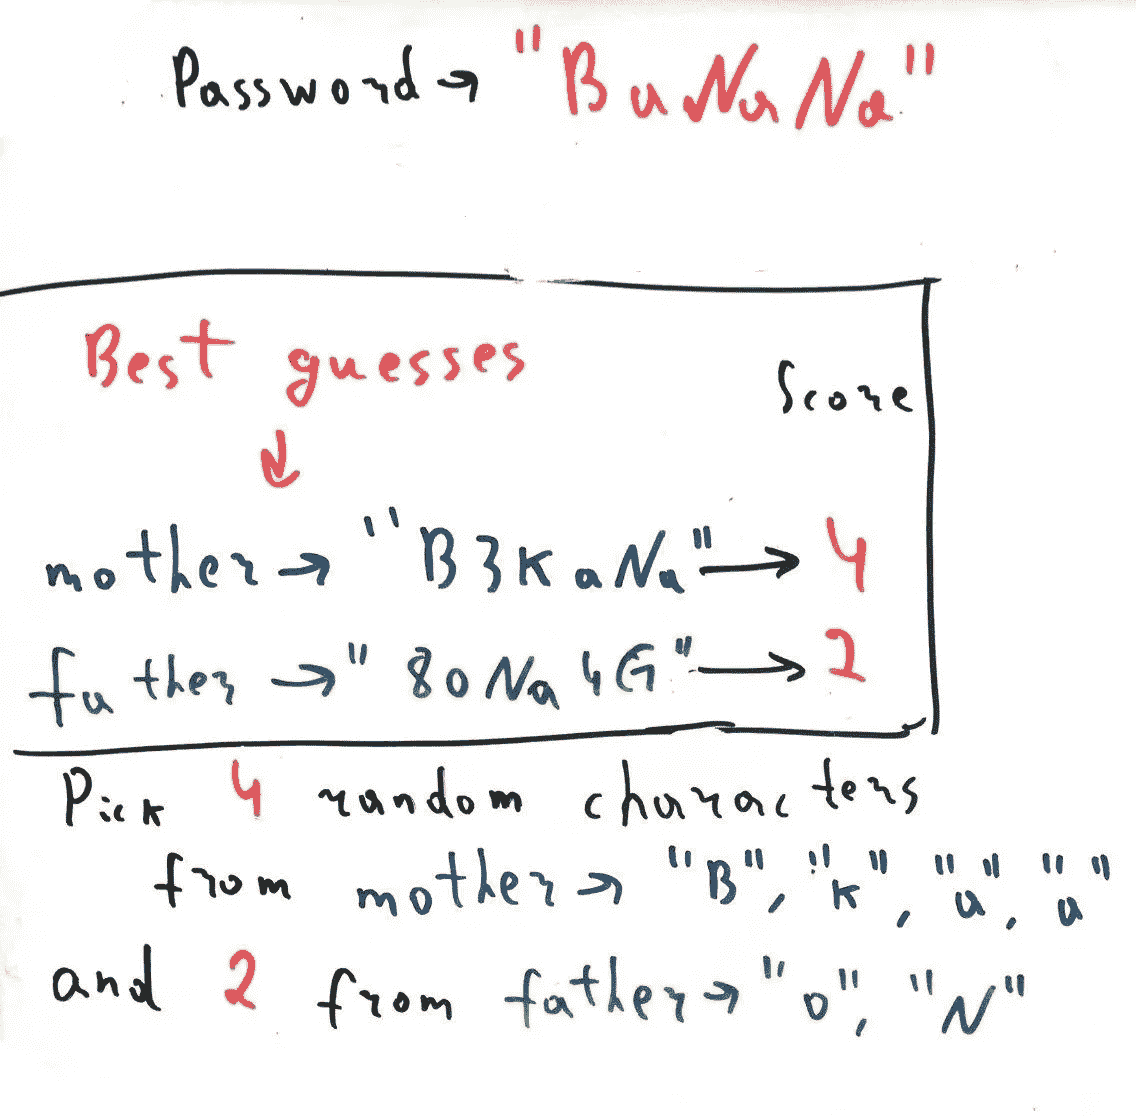 Password → "BaNaNa"
Best guesses
Score
↓
mother → "B3KaNa" → 4
father → "80Na4G" → 2
Pick 4 random characters
from mother → "B", "K", "a", "a"
and 2 from father → "0", "N"